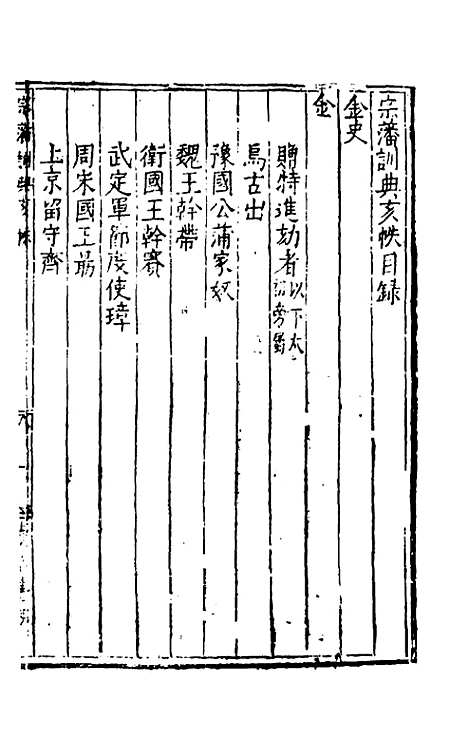 宗藩訓典亥帙目録
金史
金
贈特進劾者以下太祖旁
烏古出
豫國公蒲家奴
魏王幹帶
衛國王幹賽
武定軍節度使璋
周宋國王勗
上京留守齊
宗藩訓典亥帙